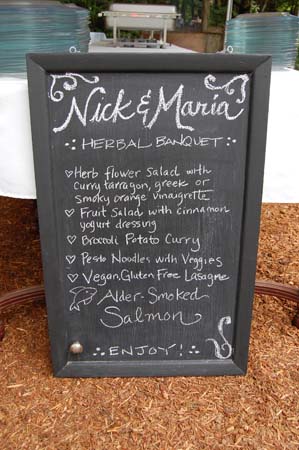 Nick & Maria
HERBAL BANQUET
Herb flower Salad with
curry tarragon, greek or
smoky orange vinaigrette
Fruit Salad with cinnamon
yogurt dressing
Broccoli Potato Curry
Pesto Noodles with Veggies
Vegan, Gluten Free Lasagne
Alder-Smoked
Salmon
ENJOY!